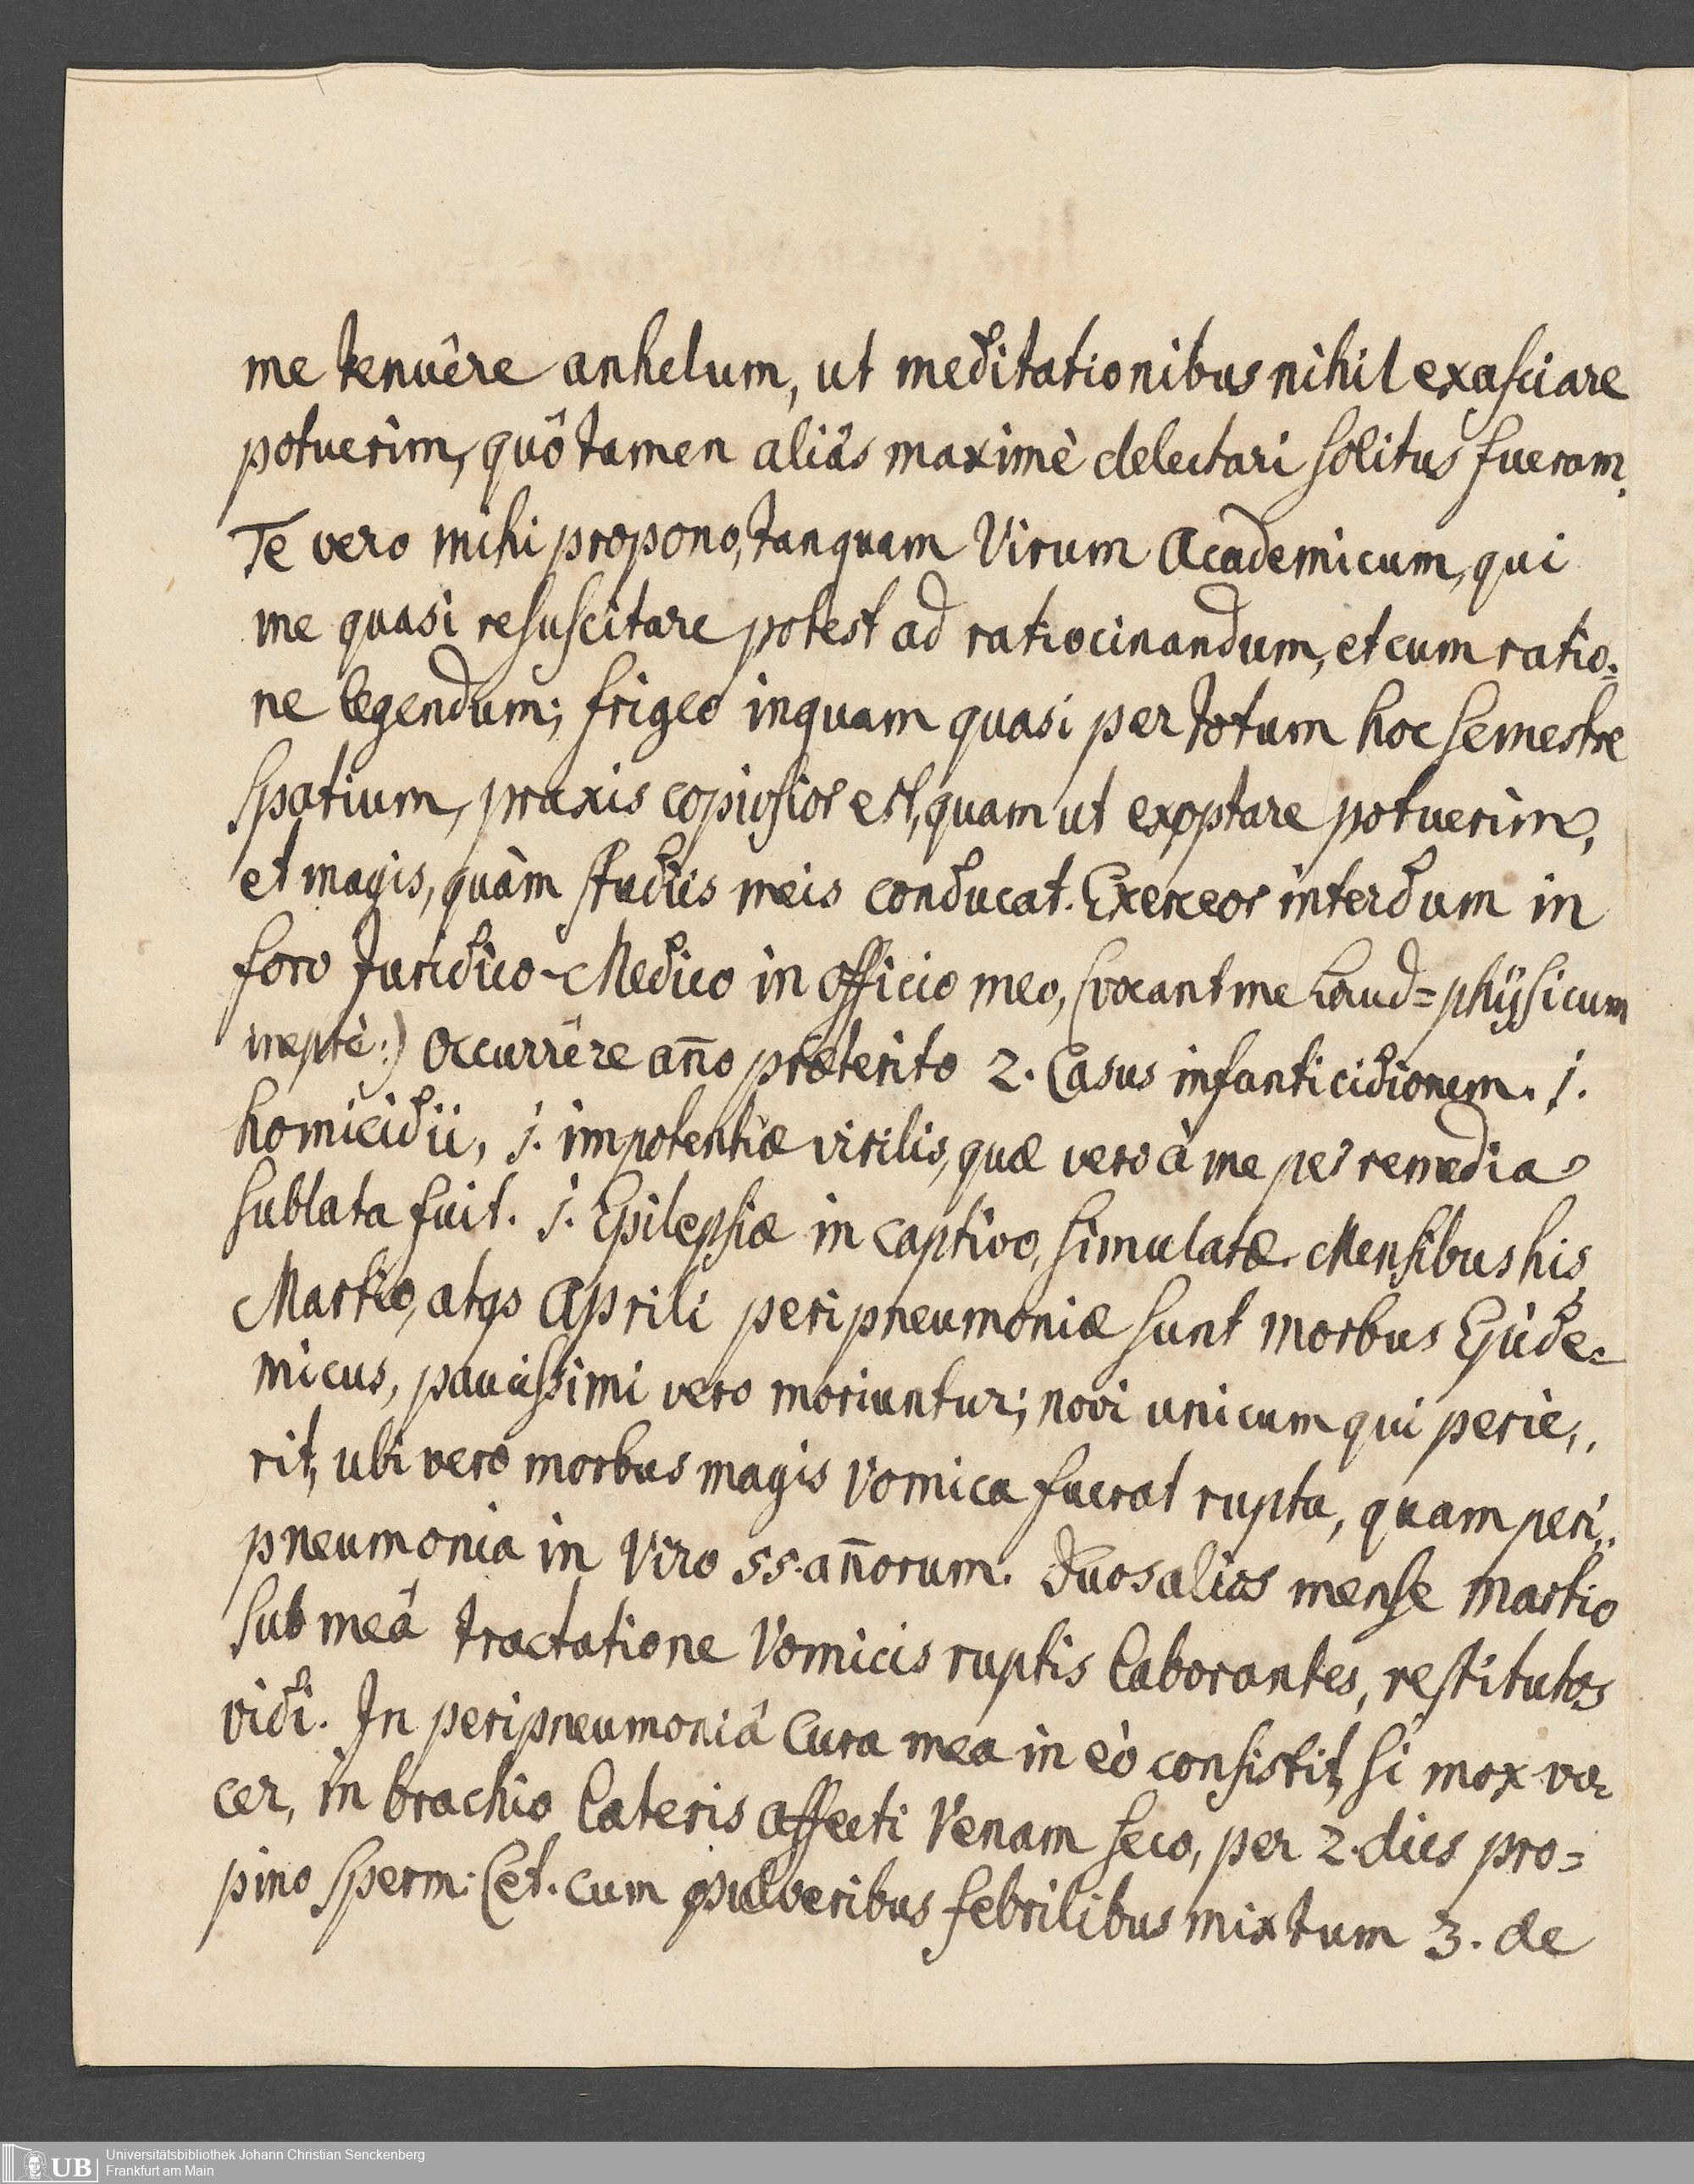 me tenuêre anhelum, ut meditationibus nihil exasciare
potuerim, quô tamen aliâs maximè delectari solitus fueram.
Te vero mihi propono, tanquam Virum Academicum, qui
me quasi resuscitare potest ad ratiocinandum, et cum ratio=
ne legendum; frigeo inquam quasi per totum hoc semestre
spatium, praxis copiosior est, quam ut exoptare potuerim,
et magis, quàm studiis meis conducat. Exerceor interdum in
foro Juridico-Medico in officio meo, (vocant me Land=physicum
ineptè:) Occurrêre año præterito 2. Casus infanticidiorum. 1.
homicidii, 1. impotentiæ virilis, quæ vero à me per remedia
sublata fuit. 1. Epilepsiæ in captivo, simulatæ. Mensibus his
Martio, atqs Aprili peripneumoniæ sunt morbus Epide=
micus, paucissimi vero moriuntur; novi unicum qui perie,,
rit, ubi vero morbus magis Vomica fuerat rupta, quam peri,,
pneumonia in Viro 55. añorum. Duos alios mense Martio
sub meâ tractatione Vomicis ruptis laborantes, restitutos
vidi. In peripneumoniâ Cura mea in eò consistit, si mox vo=
cer, in brachio lateris affecti Venam seco, per 2. dies pro=
pino Sperm: Cet. cum pulveribus febrilibus mixtum 3. de
Universitätsbibliothek Johann Christian Senckenberg
UB Frankfurt am Main